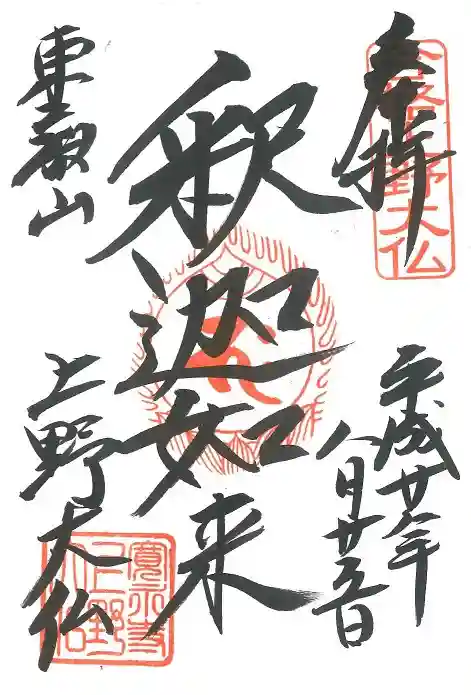 奉拝
上野大仏
平成廿年
八月廿五日
釈迦如来
東叡山
上野大仏
寛永寺
上野
大仏